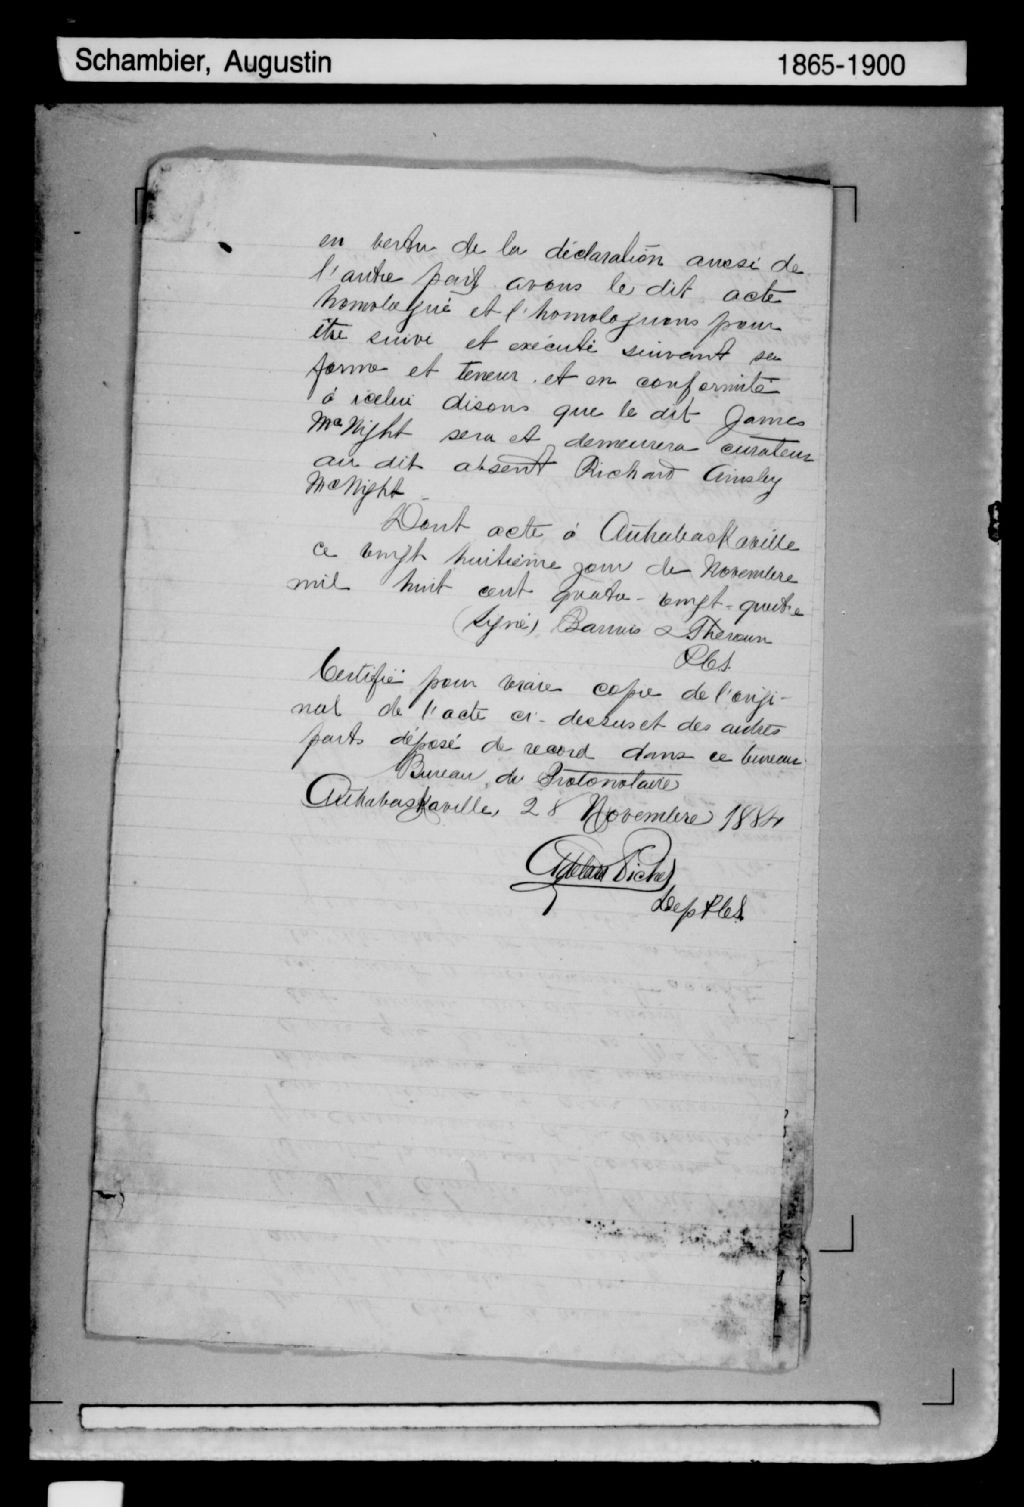 Schambier, Augustin 1865-1900
en vertu de la déclaration aussi de
l'autre part avons le dit acte
homologué et l'homologuons pour
être suivi et exécuté suivant sa
forme et teneur et en conformité
à icelui disons que le dit James
McNight sera et demeurera curateur
au dit absent Richard Ainsley
McNight
Dont acte à Arthabaskaville
ce vingt huitième jour de Novembre
mil huit cent quatre-vingt-quatre
(Signé) Barwis & Theroux
PCS
Certifié pour vraie copie de l'origi-
nal de l'acte ci-dessus et des autres
parts déposé de record dans ce bureau
Bureau du Protonotaire
Arthabaskaville, 28 Novembre 1884
Picher
Dep PCS